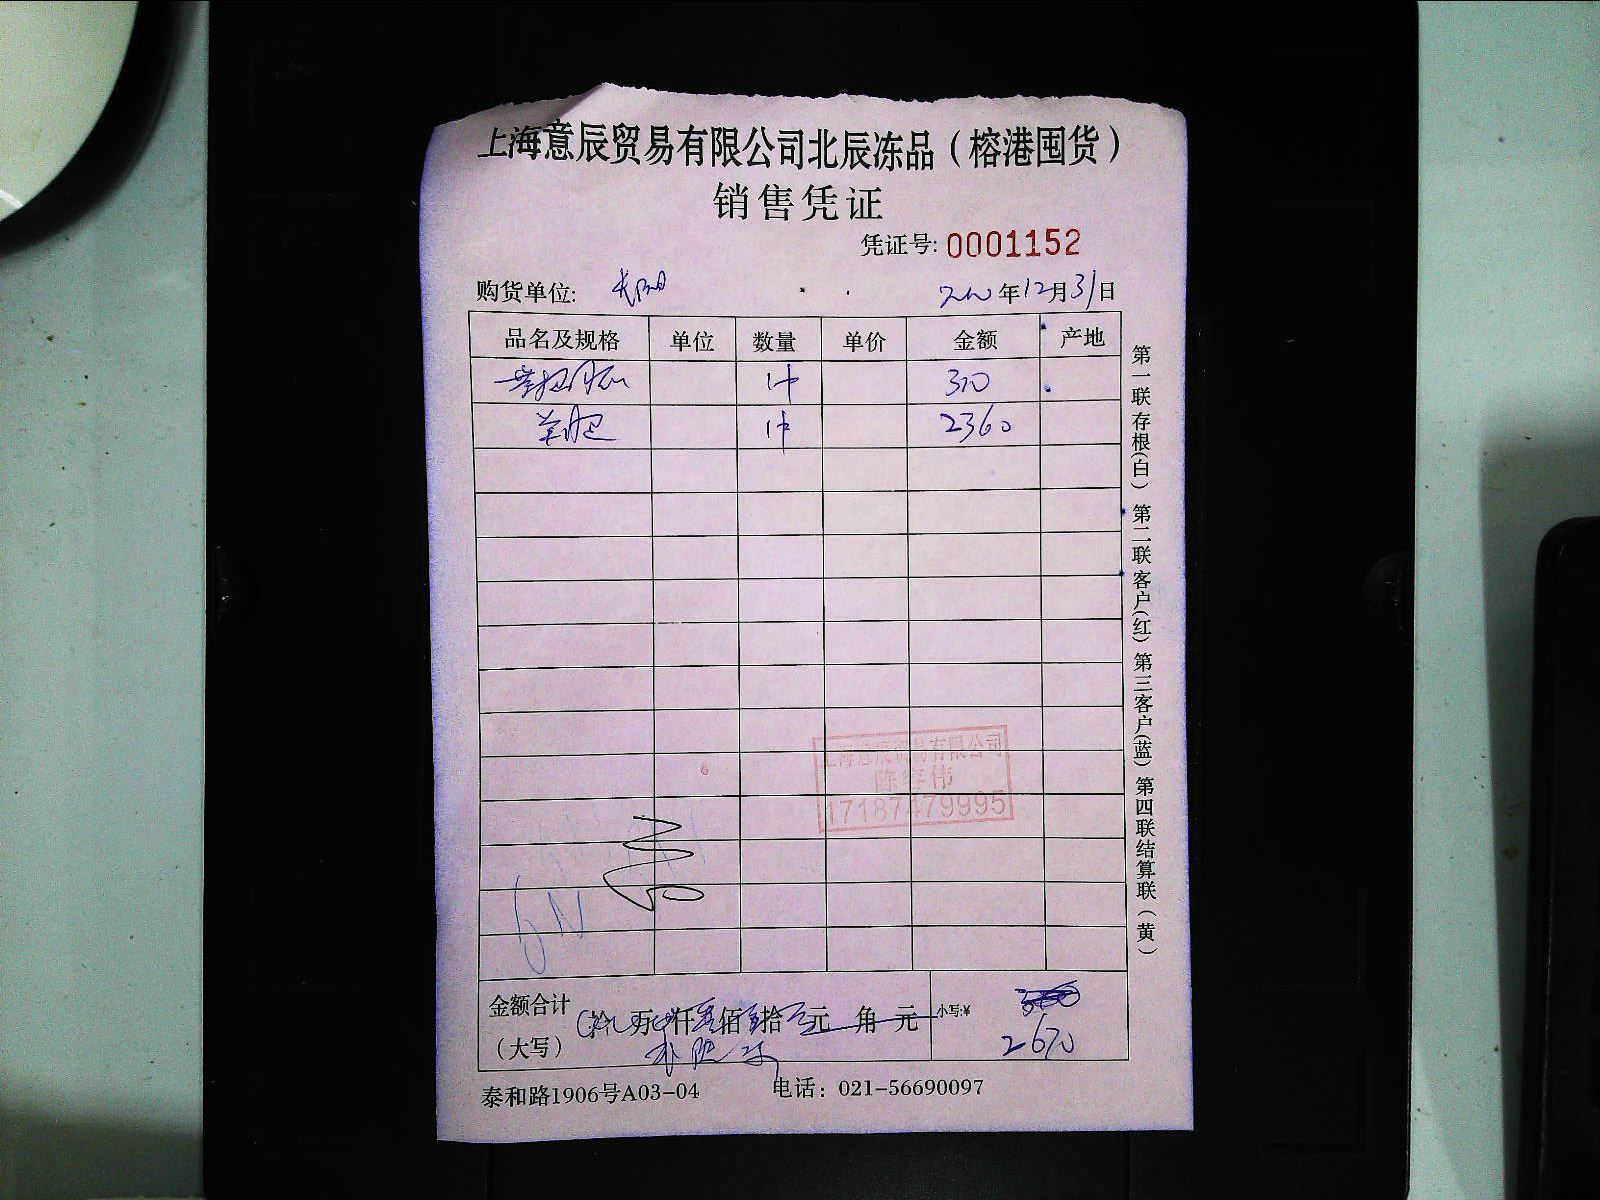 上海意辰贸易有限公司北辰冻品（榕港囤货）
销售凭证
凭证号: 0001152
购货单位:
年12月31日
品名及规格 单位 数量 单价 金额 产地
1件 310
1件 2360
第一联存根(白) 第二联客户(红) 第三客户(蓝) 第四联结算联（黄）
上海意辰贸易有限公司
17187479995
金额合计（大写） 拾 万 仟 佰 拾 元 角 元 小写:¥ 2670
泰和路1906号A03-04 电话：021-56690097